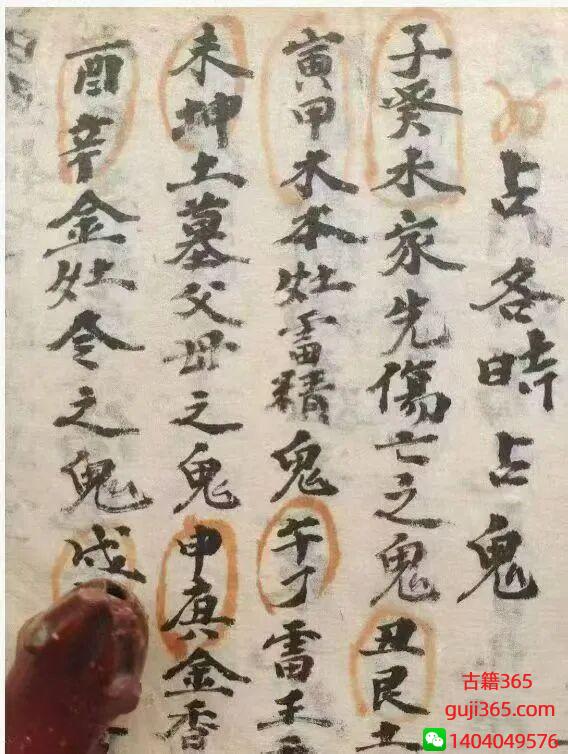 占各時占鬼
子癸水家先傷亡之鬼 丑艮土
寅甲木本灶雷精鬼 午丁雷王
未坤土墓父母之鬼 申庚金香
酉辛金灶令之鬼 戌
古籍365
guji365.com
1404049576